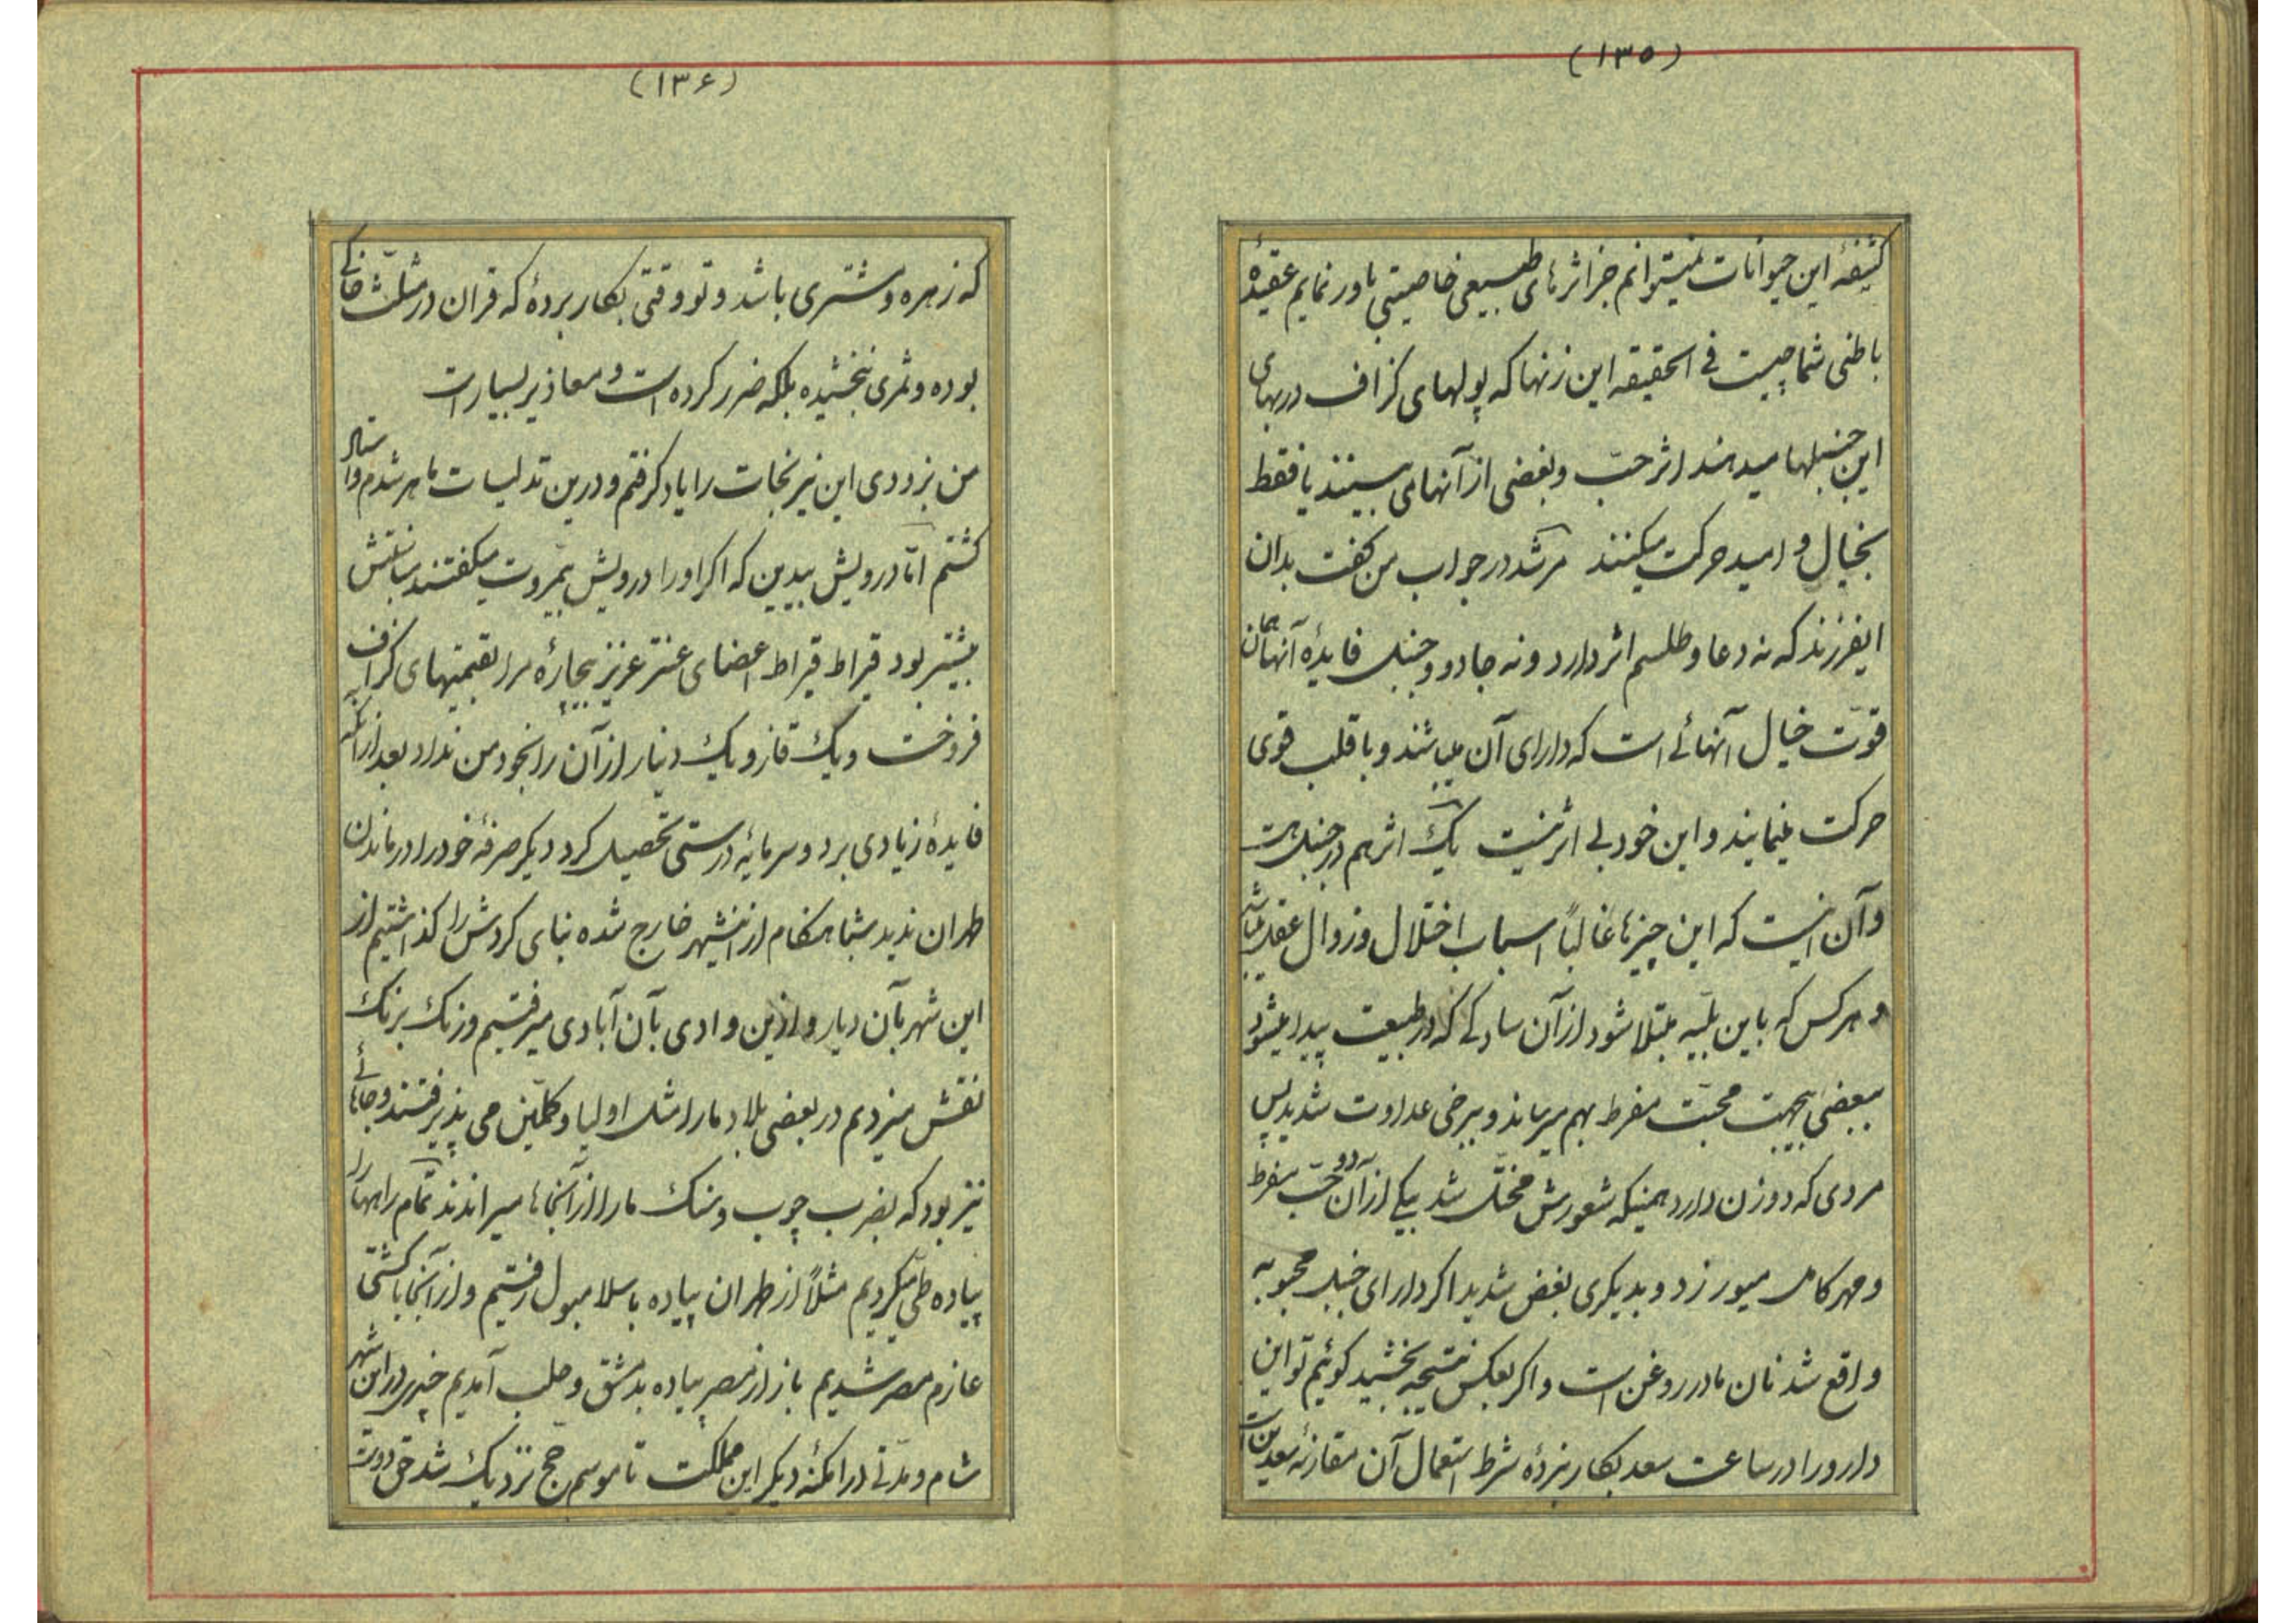 (۱۳۵)
کثیفهٔ این حیوانات نمیتوانم جز اثرهای طبیعی خاصیتی باور نمایم عقیدهٔ
باطنی شما چیست فی الحقیقه این زنها که پولهای کزاف دربهای
این جنبلها میدهند اثر حبّ و بغضی از آنها می بینند یا فقط
بخیال و امید حرکت میکنند مرشد در جواب من کفت بدان
ایفرزند که نه دعا و طلسم اثر دارد و نه جادو و جنبل فایدهٔ آنها همان
قوّت خیال آنهائی است که دارای آن میباشند و با قلب قوی
حرکت مینمایند و این خود بی اثر نیست یک اثر هم در جنبل هست
و آن اینست که این چیزها غالباً اسباب اختلال و زوال عقل میباشد
و هر کس که باین بلّیه مبتلا شود از آن سادکی که در طبیعت پیدا میشود
ببعضی بیجهت محبّت مفرط بهم میرساند و ببرخی عداوت شدید پس
مردی که دو زن دارد همینکه شعورش مختّل شد بیکی از آن دو حبّ مفرط
و مهر کامل میورزد و بدیکری بغض شدید اکر دارای جنبل محبوبه
واقع شد نان ما در روغن است و اکر بعکس نتیجه بخشید کوئیم تو این
دارو را در ساعت سعد بکار نبردهٔ شرط استعمال آن مقارنهٔ سعدین است
(۱۳۶)
که زهره و مشتری باشد و تو وقتی بکار بردهٔ که قران در مثلّث خاکی
بوده و ثمری نبخشیده بلکه ضرر کرده است و معاذیر بسیار است
من بزودی این نیرنجات را یاد کرفتم و درین تدلیسات ماهر شدم و استاد
کشتم امّا درویش بیدین که اکر او را درویش بیمروت میکفتند مناسبتش
بیشتر بود قیراط قیراط اعضای عنتر عزیز بیچارهٔ مرا بقیمتهای کزاف
فروخت و یک قاز و یک دینار از آن را بخود من نداد بعد از آنکه
فایدهٔ زیادی برد و سرمایهٔ درستی تحصیل کرد دیکر صرفهٔ خود را در ماندن
طهران ندید شباهنکام از انشهر خارج شده بنای کردش را کذاشتیم از
این شهر بآن دیار و ازین وادی بآن آبادی میرفتیم و زنک برنک
نقش میزدیم در بعضی بلاد ما را مثل اولیا و مکمّلین می پذیرفتند و جائی ها
نیز بود که بضرب چوب و سنک ما را از آنجاها میراندند تمام راهها را
پیاده طی میکردیم مثلاً از طهران پیاده باسلامبول رفتیم و از آنجا با کشتی
عازم مصر شدیم باز از مصر پیاده بدمشق و حلب آمدیم چندی در این شهر
شام و مدّتی در امکنهٔ دیکر این مملکت تا موسم حجّ نزدیک شد حق دوست